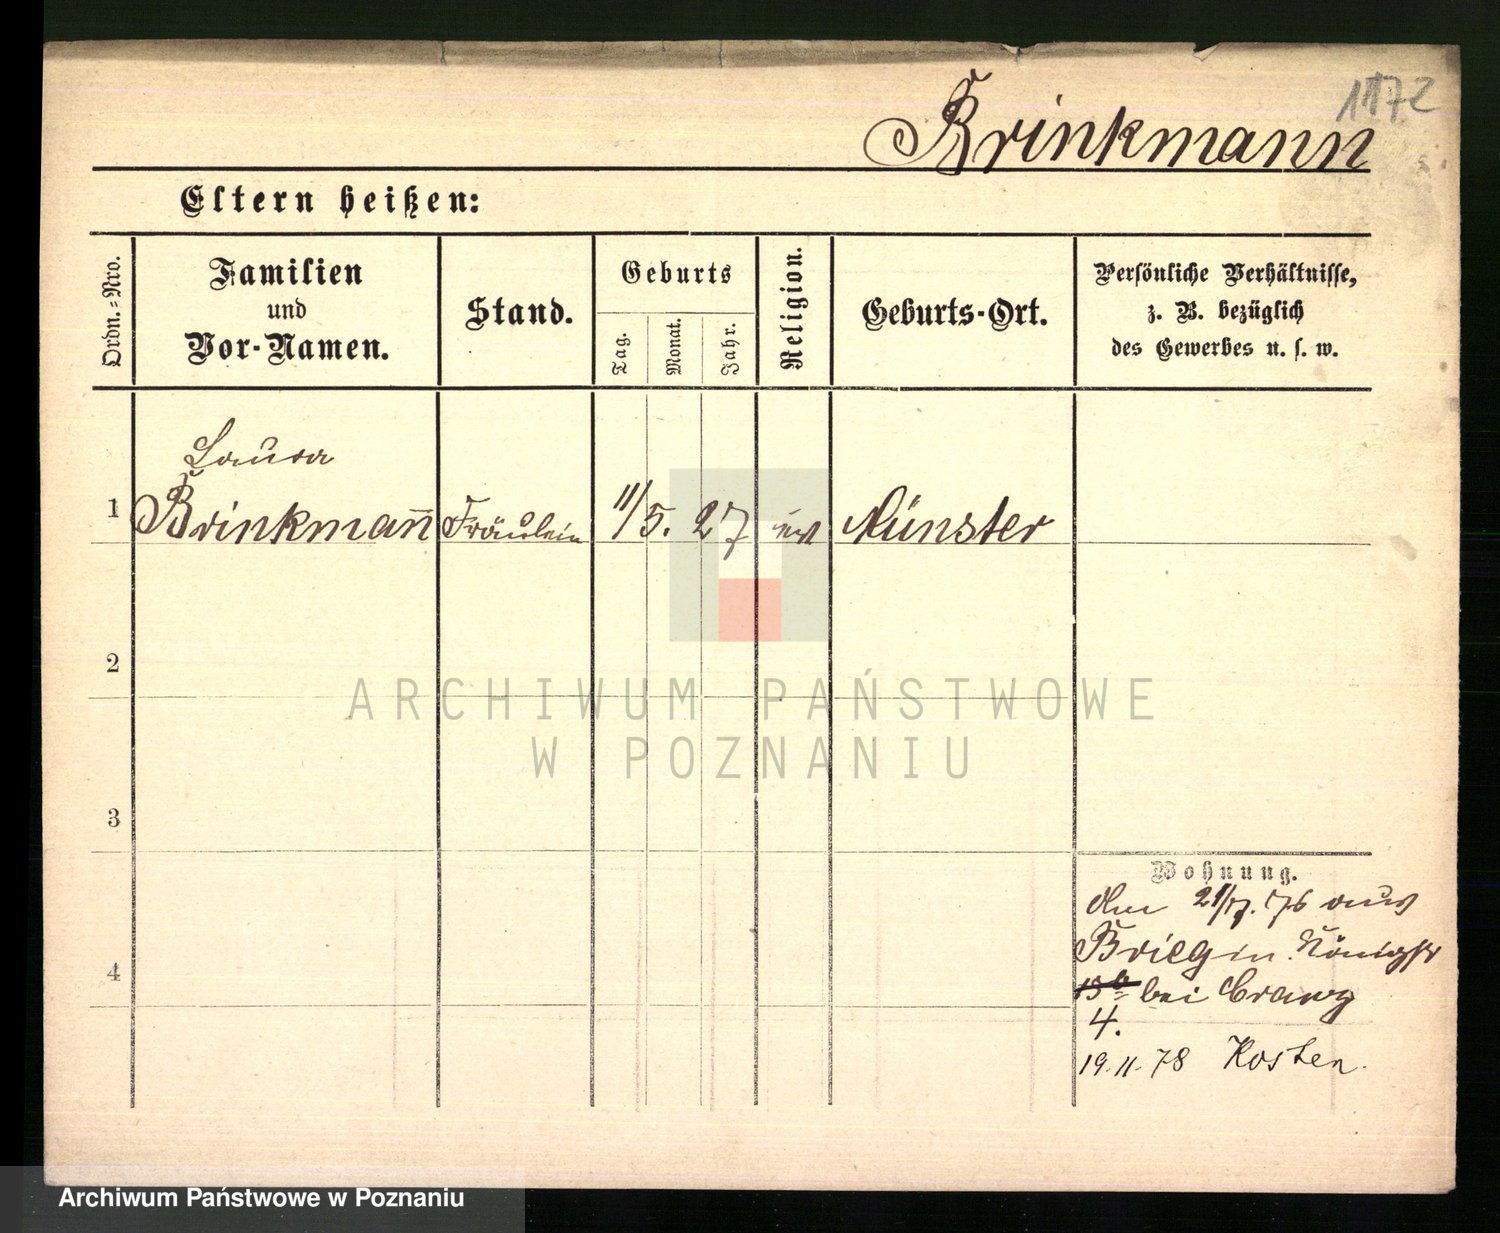 1172
Brinkmann
Eltern heißen:
Ordn.-Nro.
Familien
und
Vor-Namen.
Stand.
Geburts
Tag.
Monat.
Jahr.
Religion.
Geburts-Ort.
Persönliche Verhältnisse,
z. B. bezüglich
des Gewerbes u. s. w.
Laura
1 Brinkmañ Fräulein 11/5. 27 Münster
2
ARCHIWUM PAŃSTWOWE
W POZNANIU
3
Wohnung.
76 aus
Brieg in Königstr
bei
4
4.
19.11.78 Kosten.
Archiwum Państwowe w Poznaniu